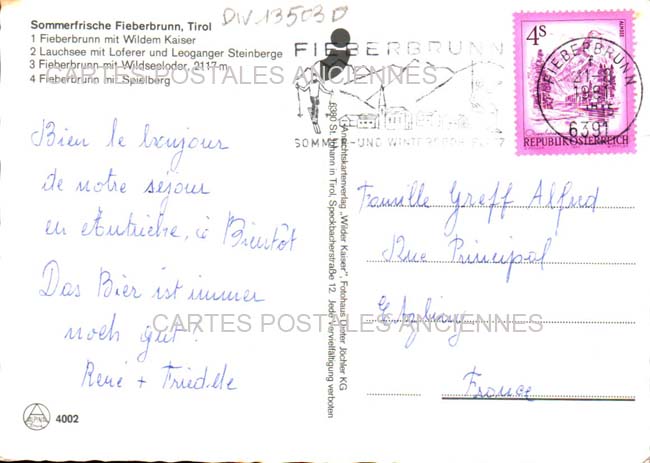 DIV 13503 D
Sommerfrische Fieberbrunn, Tirol
1 Fieberbrunn mit Wildem Kaiser
2 Lauchsee mit Loferer und Leoganger Steinberge
3 Fieberbrunn mit Wildseeloder, 2117 m
4 Fieberbrunn mit Spielberg
CARTES POSTALES ANCIENNES
FIEBERBRUNN
SOMMER- UND WINTER
4S
REPUBLIK ÖSTERREICH
FIEBERBRUNN
6391
Bien le bonjour
de notre séjour
en Autriche, à Bientôt
Das Bier ist immer
noch gut!
CARTES POSTALES ANCIENNES
René +
Ansichtskartenverlag „Wilder Kaiser", Fotohaus Dieter Jöchler KG
6380 St. Johann in Tirol, Speckbacherstraße 12, Jede Vervielfältigung verboten
Famille Greff Alfred
Rue Principal
France
4002